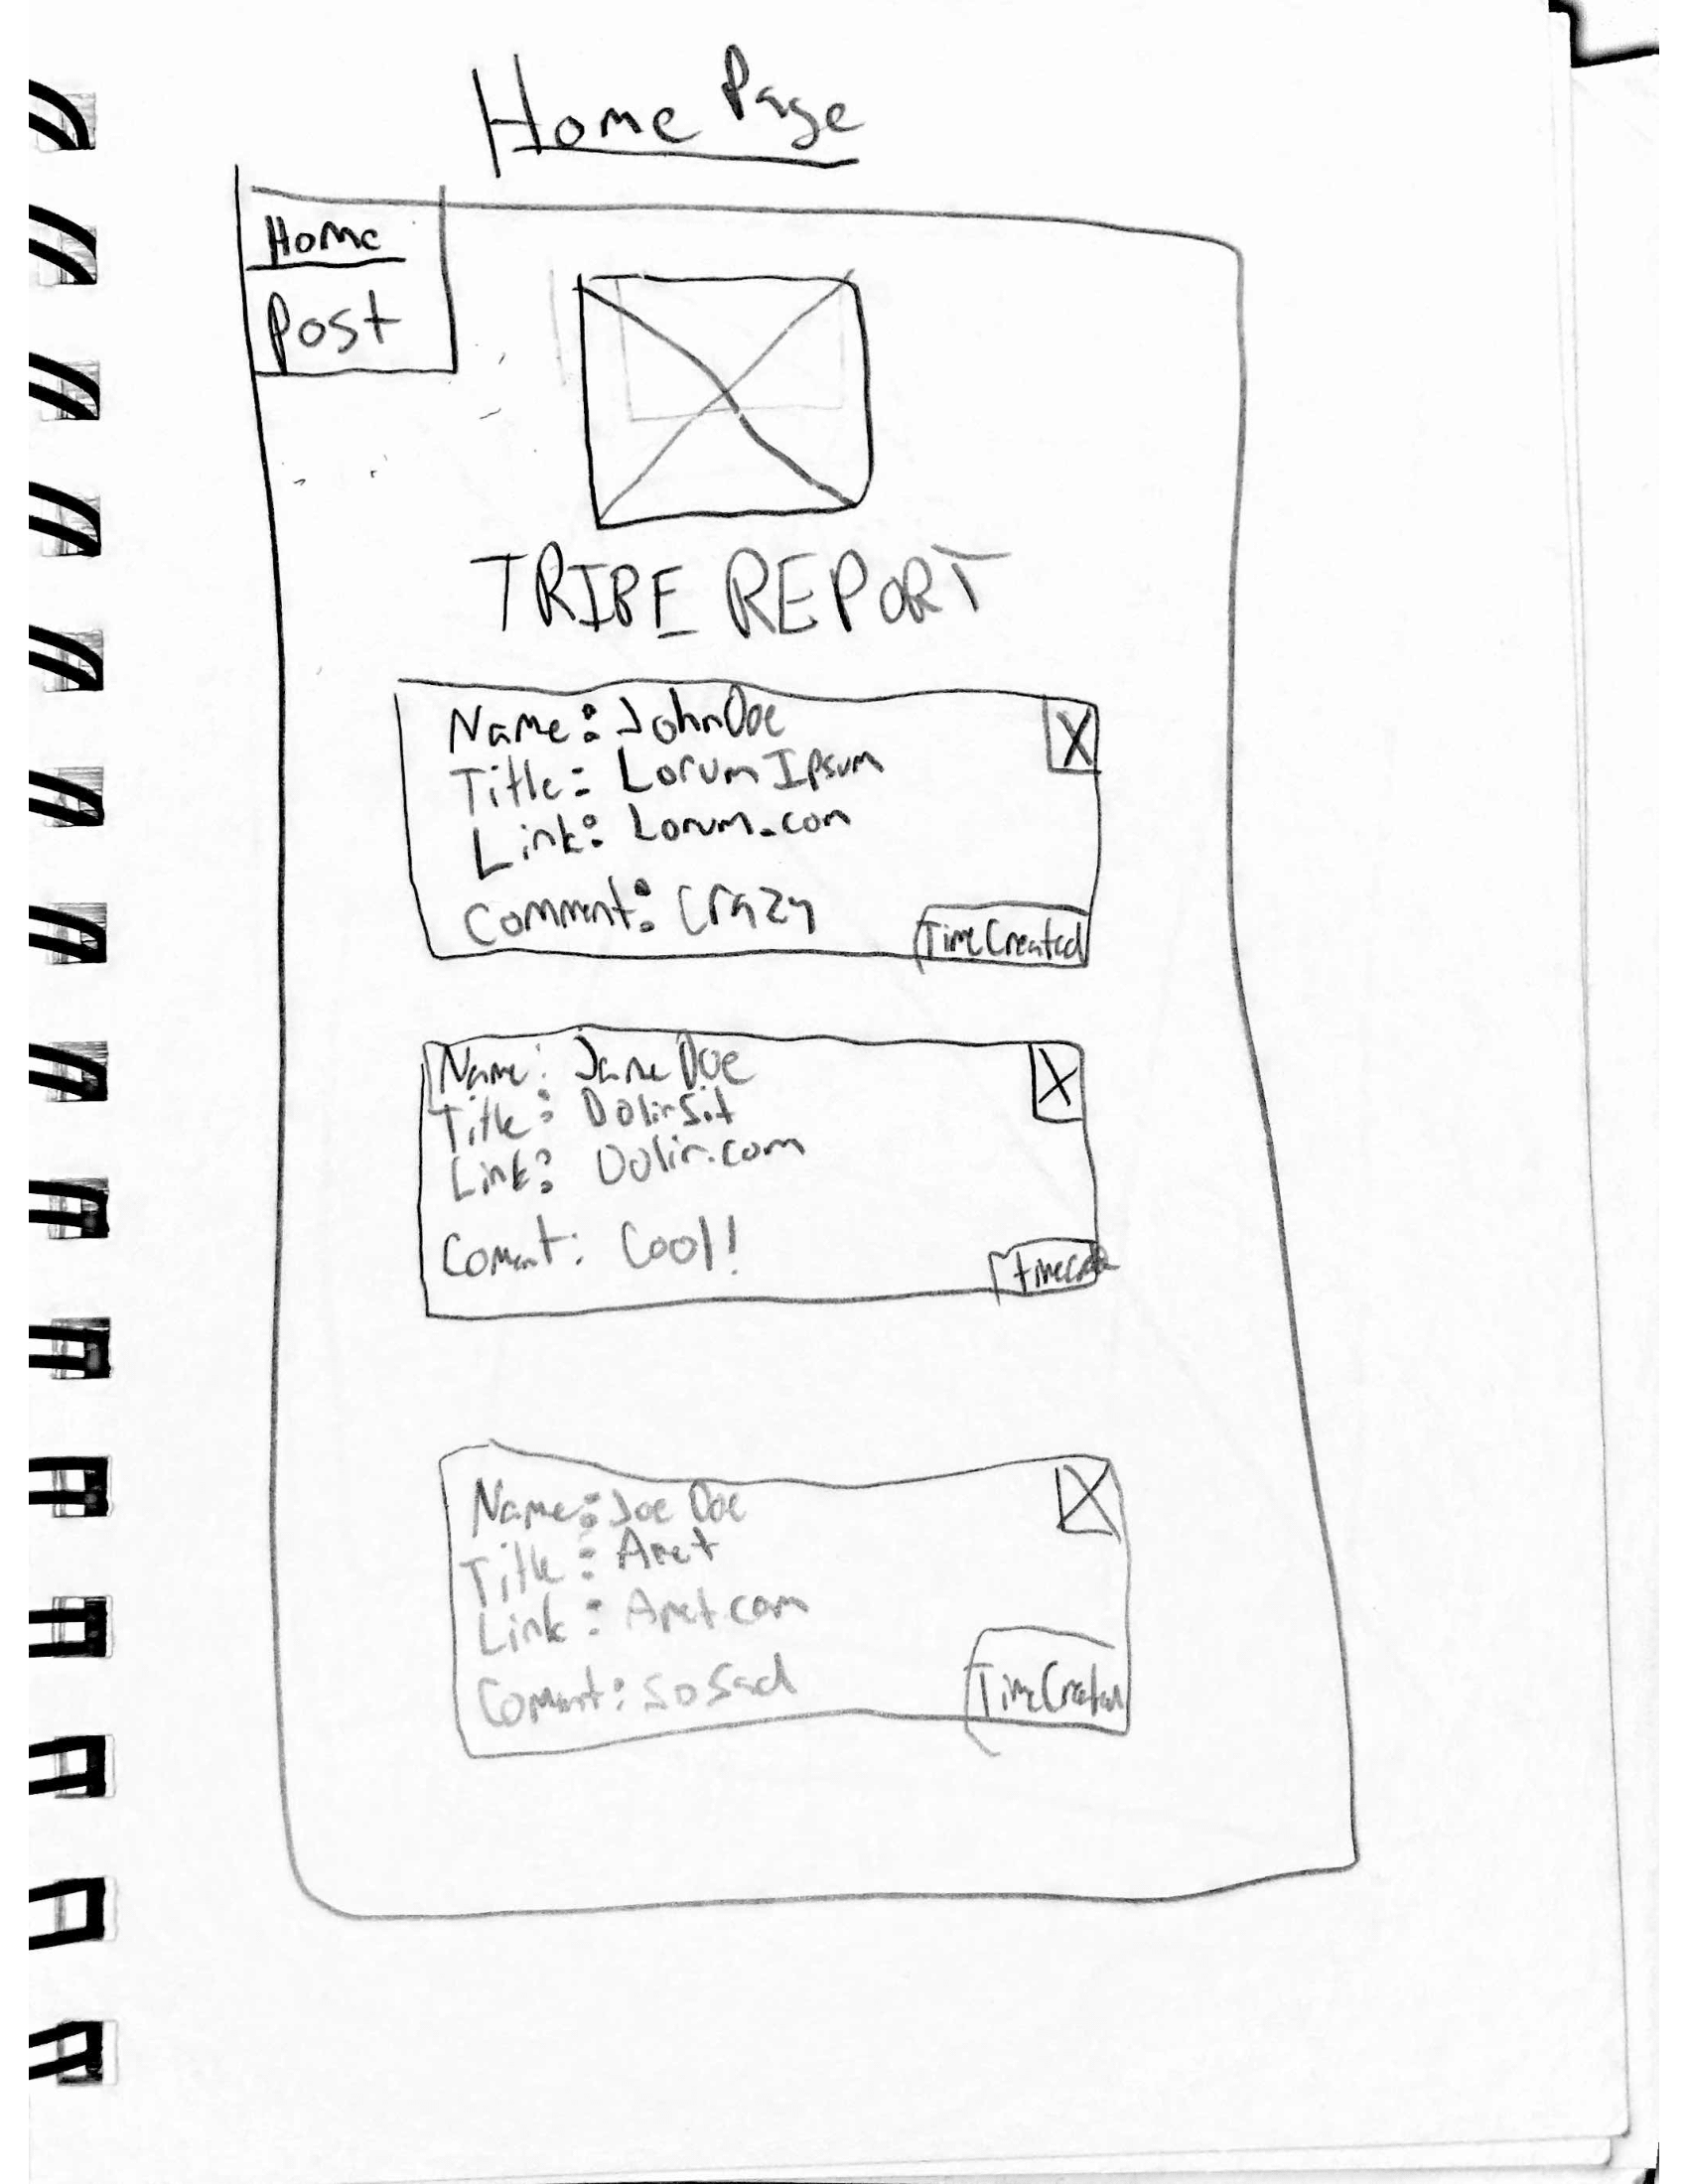 Home Page
Home
Post
TRIBE REPORT
Name: John Doe
X
Title: Lorum Ipsum
Link: Lorum.com
Comment: Crazy
Time Created
Name: Jane Doe
X
Title: Dolir Sit
Link: Dolir.com
Coment: Cool!
Name: Joe Doe
X
Title: Amet
Link: Amet.com
Coment: So Sad
Time Created